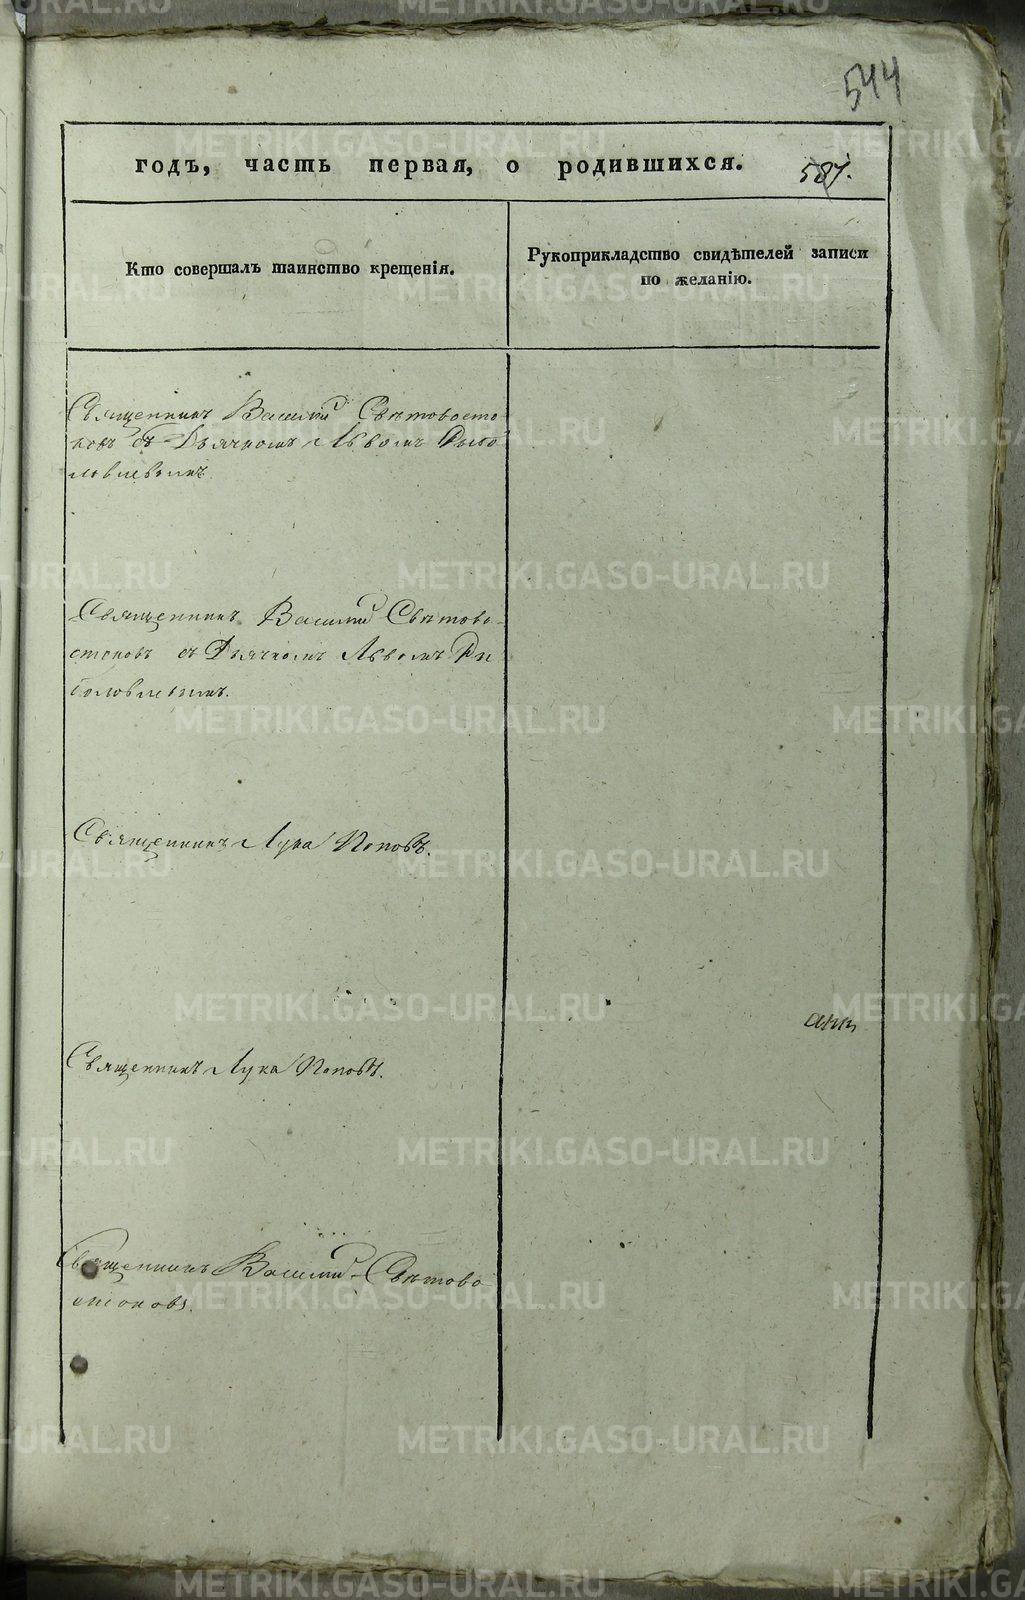 544
годъ, часть первая, о родившихся. 587.
Кто совершалъ таинство крещенія.
Рукоприкладство свидѣтелей записи
по желанію.
Священникъ Василий Свѣтовосто-
ковъ съ Дьячкомъ Львомъ Рыбо
ловлевымъ.
Священникъ Василий Свѣтово-
стоковъ съ Дьячкомъ Львомъ Ры
боловлевымъ.
Священникъ Лука Поповъ.
Священникъ Лука Поповъ.
Священникъ Василий Свѣтово
стоковъ.
METRIKI.GASO-URAL.RU